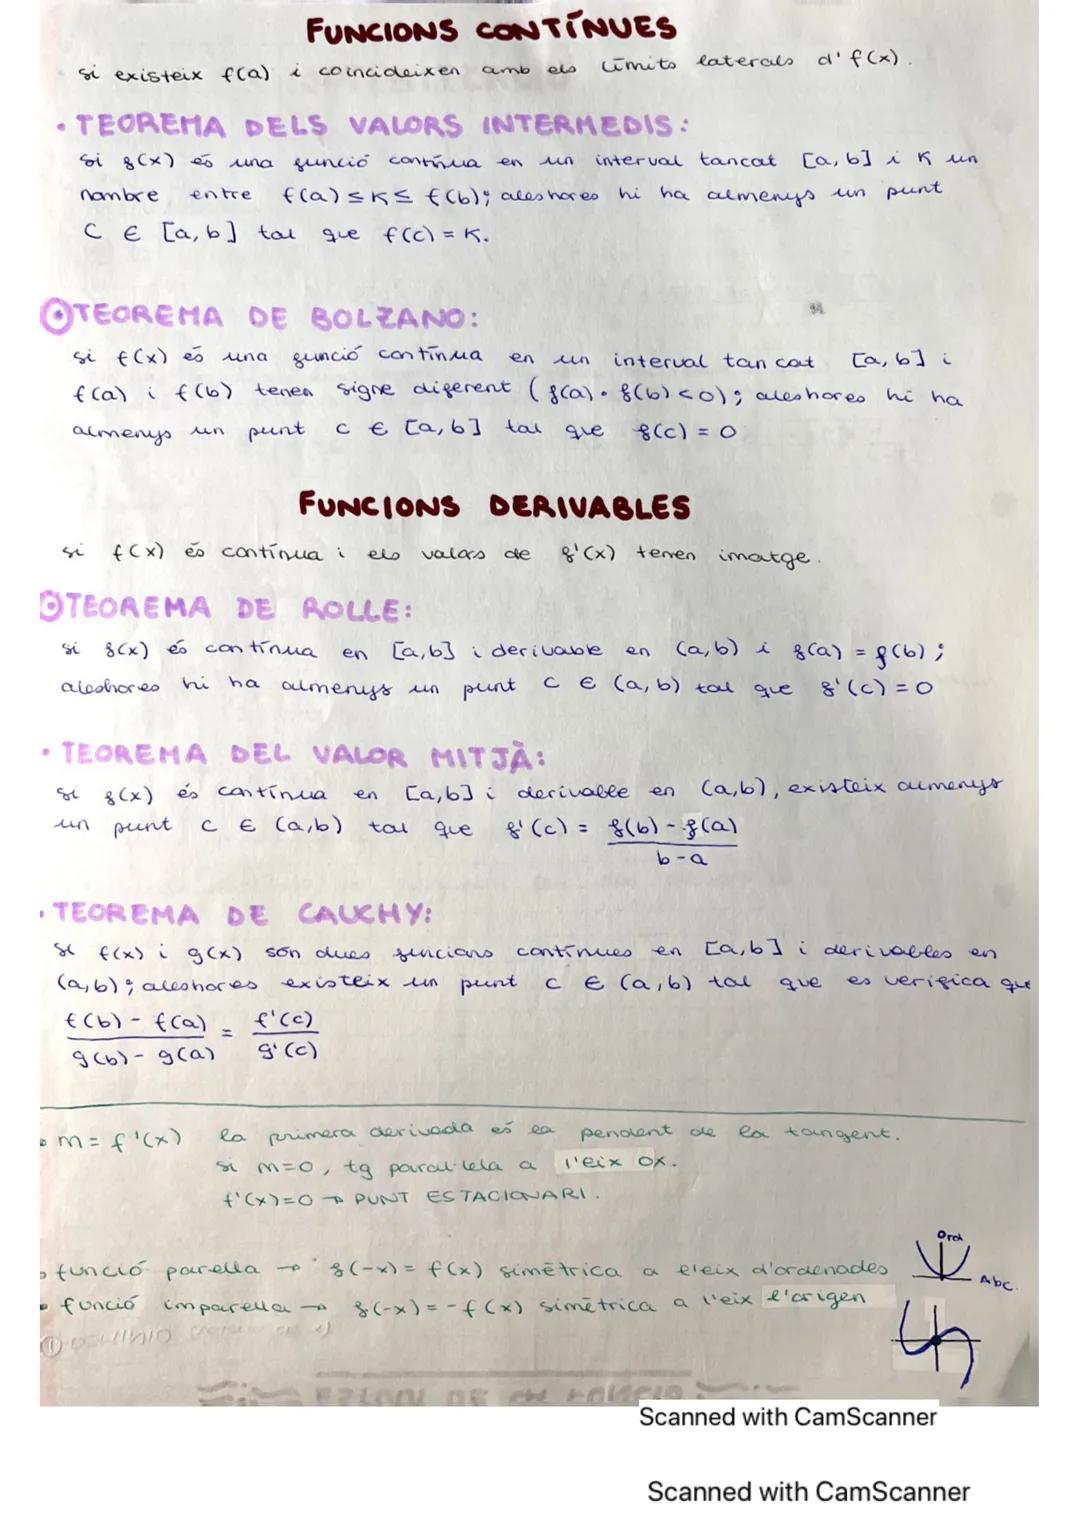 FUNCIONS CONTÍNUES
si existeix f(a) i coincideixen amb els límits laterals d'f(x).
• TEOREMA DELS VALORS INTERMEDIS:
si f(x) és una funció contínua en un interval tancat [a,b] i K un
nombre entre f(a) ≤ K ≤ f(b); aleshores hi ha almenys un punt
C ∈ [a,b] tal que f(c) = K.
• TEOREMA DE BOLZANO:
si f(x) és una funció contínua en un interval tancat [a,b] i
f(a) i f(b) tenen signe diferent (f(a) · f(b) < 0); aleshores hi ha
almenys un punt c ∈ [a,b] tal que f(c) = 0
FUNCIONS DERIVABLES
si f(x) és contínua i els valors de f'(x) tenen imatge.
• TEOREMA DE ROLLE:
si f(x) és contínua en [a,b] i derivable en (a,b) i f(a) = f(b);
aleshores hi ha almenys un punt c ∈ (a,b) tal que f'(c) = 0
• TEOREMA DEL VALOR MITJÀ:
si f(x) és contínua en [a,b] i derivable en (a,b), existeix almenys
un punt c ∈ (a,b) tal que f'(c) = f(b) - f(a)
b - a
• TEOREMA DE CAUCHY:
si f(x) i g(x) són dues funcions contínues en [a,b] i derivables en
(a,b); aleshores existeix un punt c ∈ (a,b) tal que es verifica que
f(b) - f(a) = f'(c)
g(b) - g(a) g'(c)
• m = f'(x) la primera derivada és la pendent de la tangent.
si m=0, tg paral·lela a l'eix OX.
f'(x)=0 → PUNT ESTACIONARI.
Ord
• funció parella → f(-x) = f(x) simètrica a l'eix d'ordenades
Abc.
• funció imparella → f(-x) = -f(x) simètrica a l'eix l'origen
① DOMINIO
Scanned with CamScanner
Scanned with CamScanner